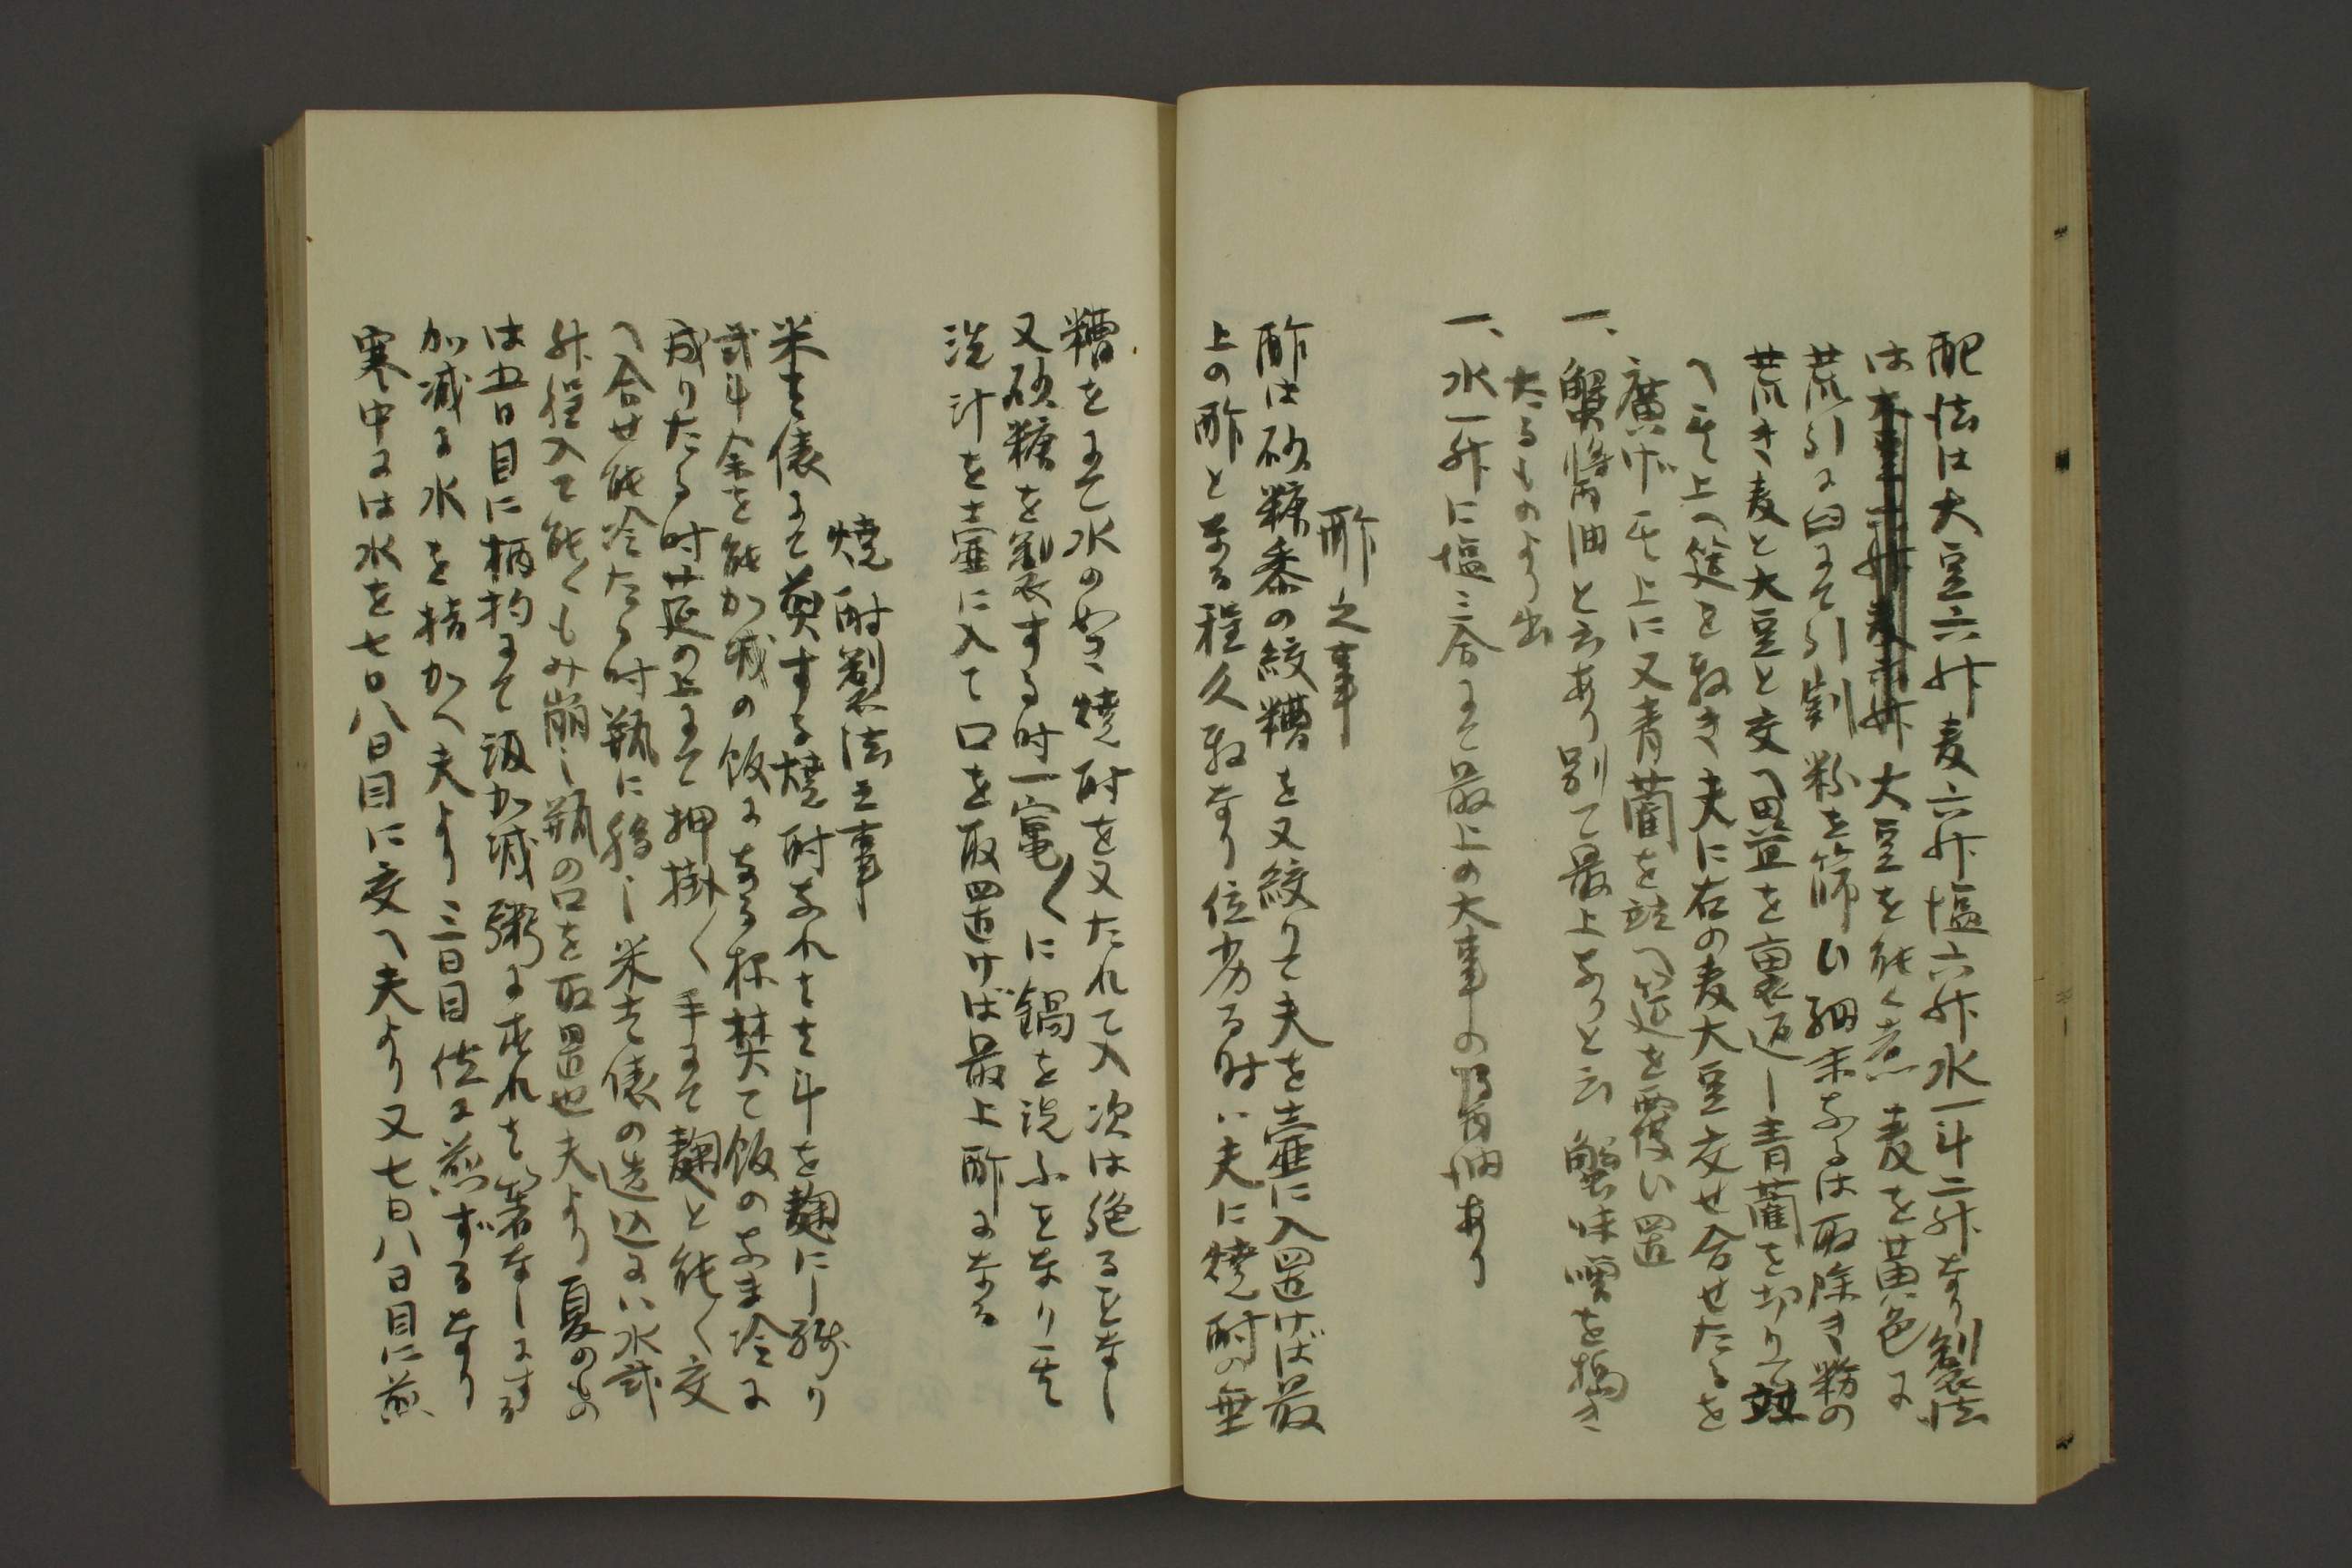 配法は大豆六舛麦六舛塩六舛水一斗二舛なり製法
は大豆を能く煮麦を黄色に
荒引に臼にて引割粉を篩ひ細末なるは取除き粉の
荒き麦と大豆と交へ置を裏返し青藺を切りて
へ其上へ筵を敷き夫に右の麦大豆交せ合せたるを
廣げ其上に又青藺を並へ筵を覆い置
一、蟹醤油と云あり別て最上なりと云蟹味噌を搗き
たるものより出
一、水一舛に塩三合にて最上の大事の醤油あり
酢之事
酢は砂糖黍の絞糟を又絞りて夫を壷に入置けば最
上の酢となる程久敷なり位劣る時ハ夫に焼酎の垂
糟をにて水の如き焼酎を又たれて入次は絶ることなし
又砂糖を製する時一竃〱に鍋を洗ふことなり其
洗汁を壷に入て口を取置けば最上酢になる
焼酎製法之事
米壱俵にて煎する焼酎なれは壱斗を麹にし残り
弐斗余を能か減の飯になる様焚て飯のなま冷に
成りたる時筵の上にて押掛〱手にて麹と能〱交
へ合せ能冷たる時瓶に移し米壱俵の造込にハ水弐
舛程入て能〱もみ崩し瓶の口を取置也夫より夏のもの
は五日目に柄杓にて汲か減粥に垂れは箸なしにする
加減に水を揩かへ夫より三日目位に煎ずるなり
寒中には水を七日八日目に交へ夫より又七日八日目に煎